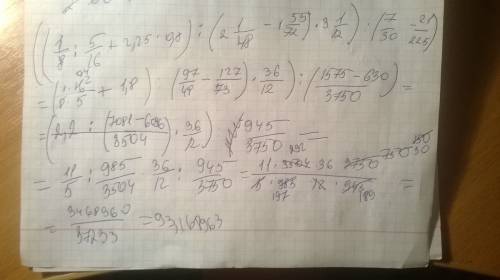 ((1/8 : 5/16 + 2,25 · 0,8) : (2 1/48 − 1 55/72) · 3 1/12) : (7/30 − 21/225)
= (1/8 · 16/5 + 1,8) : (97/48 − 127/73) · 36/12) : (1575−630/3750) =
= (2,2 : (7081−6096/3504) · 36/12) 945/3750 =
= 11/5 : 985/3504 · 36/12 : 945/3750 = 11 · 3504 · 36 · 3750 / 5 · 985 · 12 · 945 =
= 3468960/37233 = 93,168963